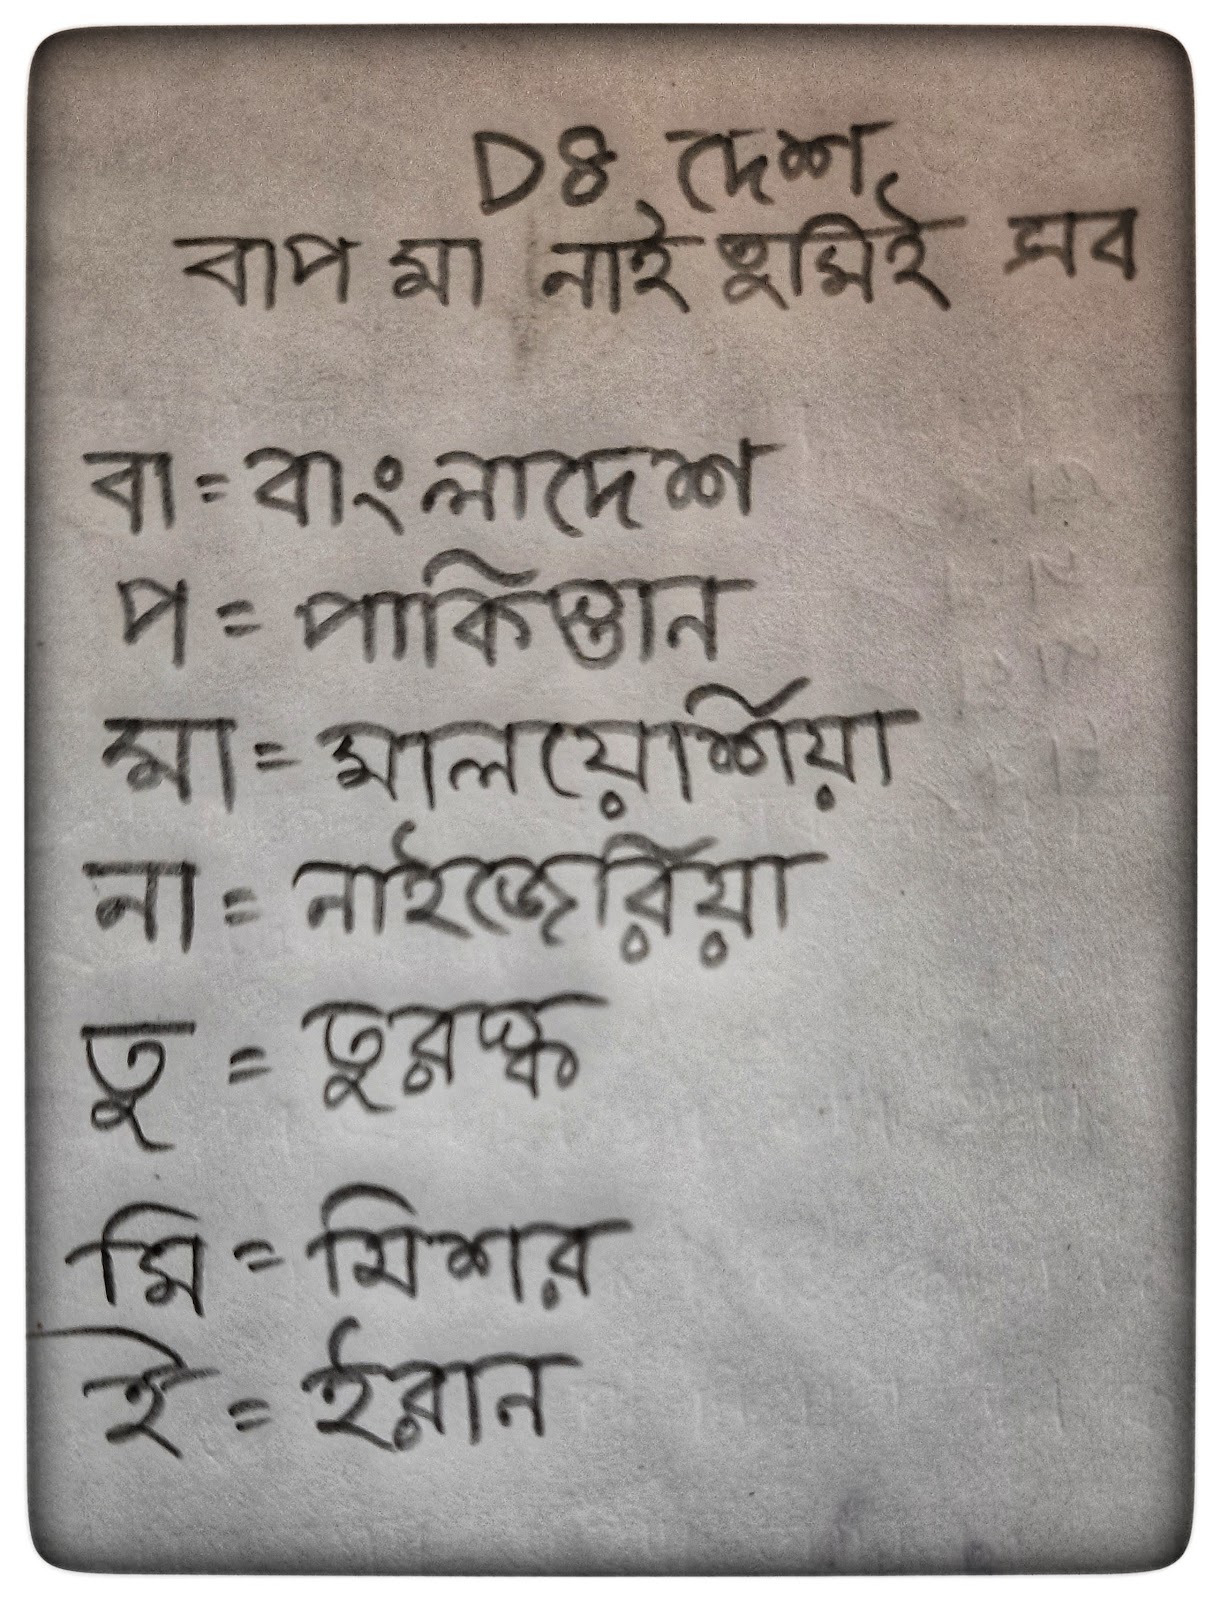 D8 দেশ,
বাপ মা নাই তুমিই সব
বা = বাংলাদেশ
প = পাকিস্তান
মা = মালয়েশিয়া
না = নাইজেরিয়া
তু = তুরষ্ক
মি = মিশর
ই = ইরান